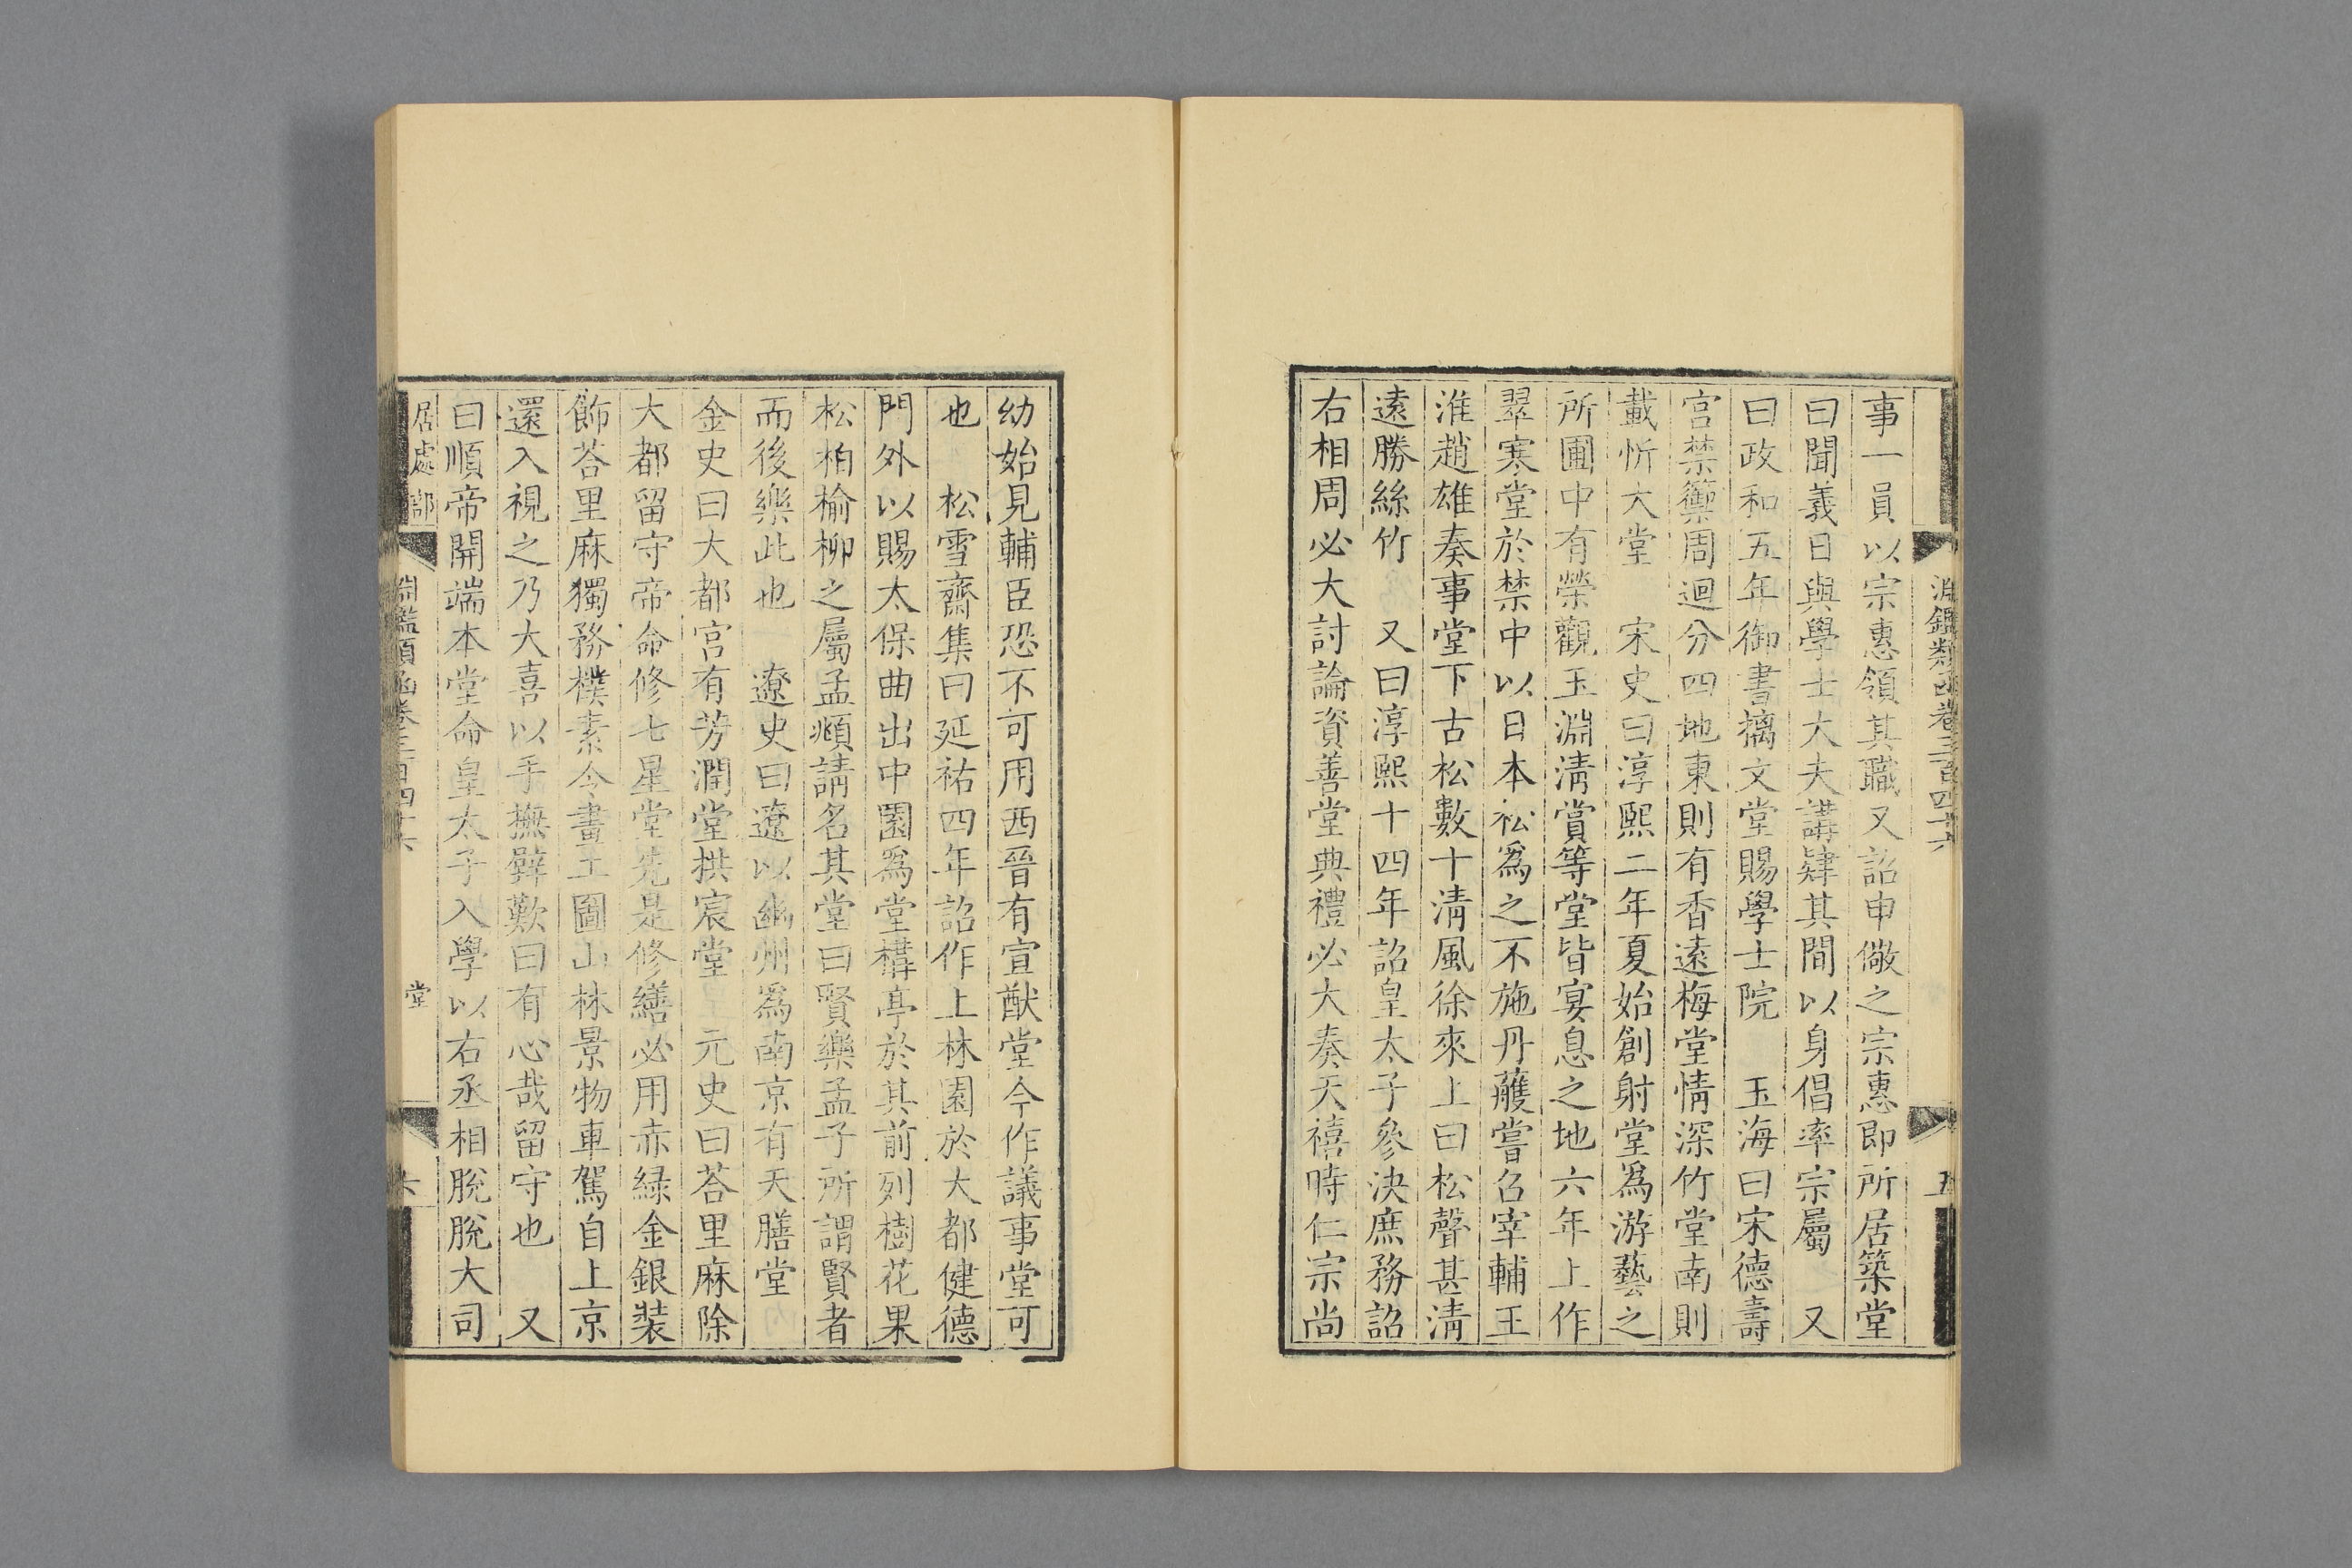 淵鑑類函卷三百四十六
五
事一員以宗惠領其職又詔申儆之宗惠即所居築堂
曰聞義日與學士大夫講肄其間以身倡率宗屬　又
曰政和五年御書摛文堂賜學士院　玉海曰宋德壽
宮禁籞周迴分四地東則有香遠梅堂情深竹堂南則
載忻大堂　宋史曰淳熙二年夏始創射堂爲游藝之
所圃中有榮觀玉淵淸賞等堂皆宴息之地六年上作
翠寒堂於禁中以日本松爲之不施丹雘嘗召宰輔王
淮趙雄奏事堂下古松數十淸風徐來上曰松聲甚淸
遠勝絲竹　又曰淳熙十四年詔皇太子參決庶務詔
右相周必大討論資善堂典禮必大奏天禧時仁宗尚
幼始見輔臣恐不可用西晉有宣猷堂今作議事堂可
也　松雪齋集曰延祐四年詔作上林園於大都健德
門外以賜太保曲出中園爲堂構亭於其前列樹花果
松柏榆柳之屬孟頫請名其堂曰賢樂孟子所謂賢者
而後樂此也　遼史曰遼以幽州爲南京有天膳堂
金史曰大都宮有芳潤堂拱宸堂　元史曰荅里麻除
大都留守帝命修七星堂先是修繕必用赤綠金銀裝
飾荅里麻獨務樸素令畫工圖山林景物車駕自上京
還入視之乃大喜以手撫壁歎曰有心哉留守也　又
曰順帝開端本堂命皇太子入學以右丞相脫脫大司
居處部
淵鑑類函卷三百四十六
堂
六